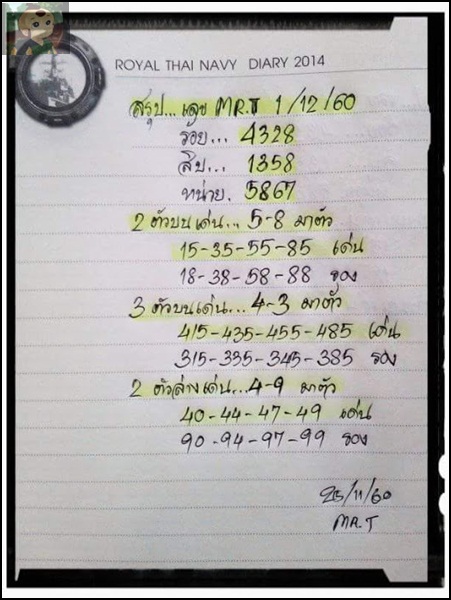 ROYAL THAI NAVY DIARY 2014
สรุป... เลข MR.T 1/12/60
ร้อย... 4328
สิบ... 1358
หน่วย. 5867
2 ตัวบนเด่น... 5-8 มาตัว
15-35-55-85 เด่น
18-38-58-88 รอง
3 ตัวบนเด่น... 4-3 มาตัว
415-435-455-485 เด่น
315-335-345-385 รอง
2 ตัวล่างเด่น... 4-9 มาตัว
40-44-47-49 เด่น
90-94-97-99 รอง
25/11/60
MR.T